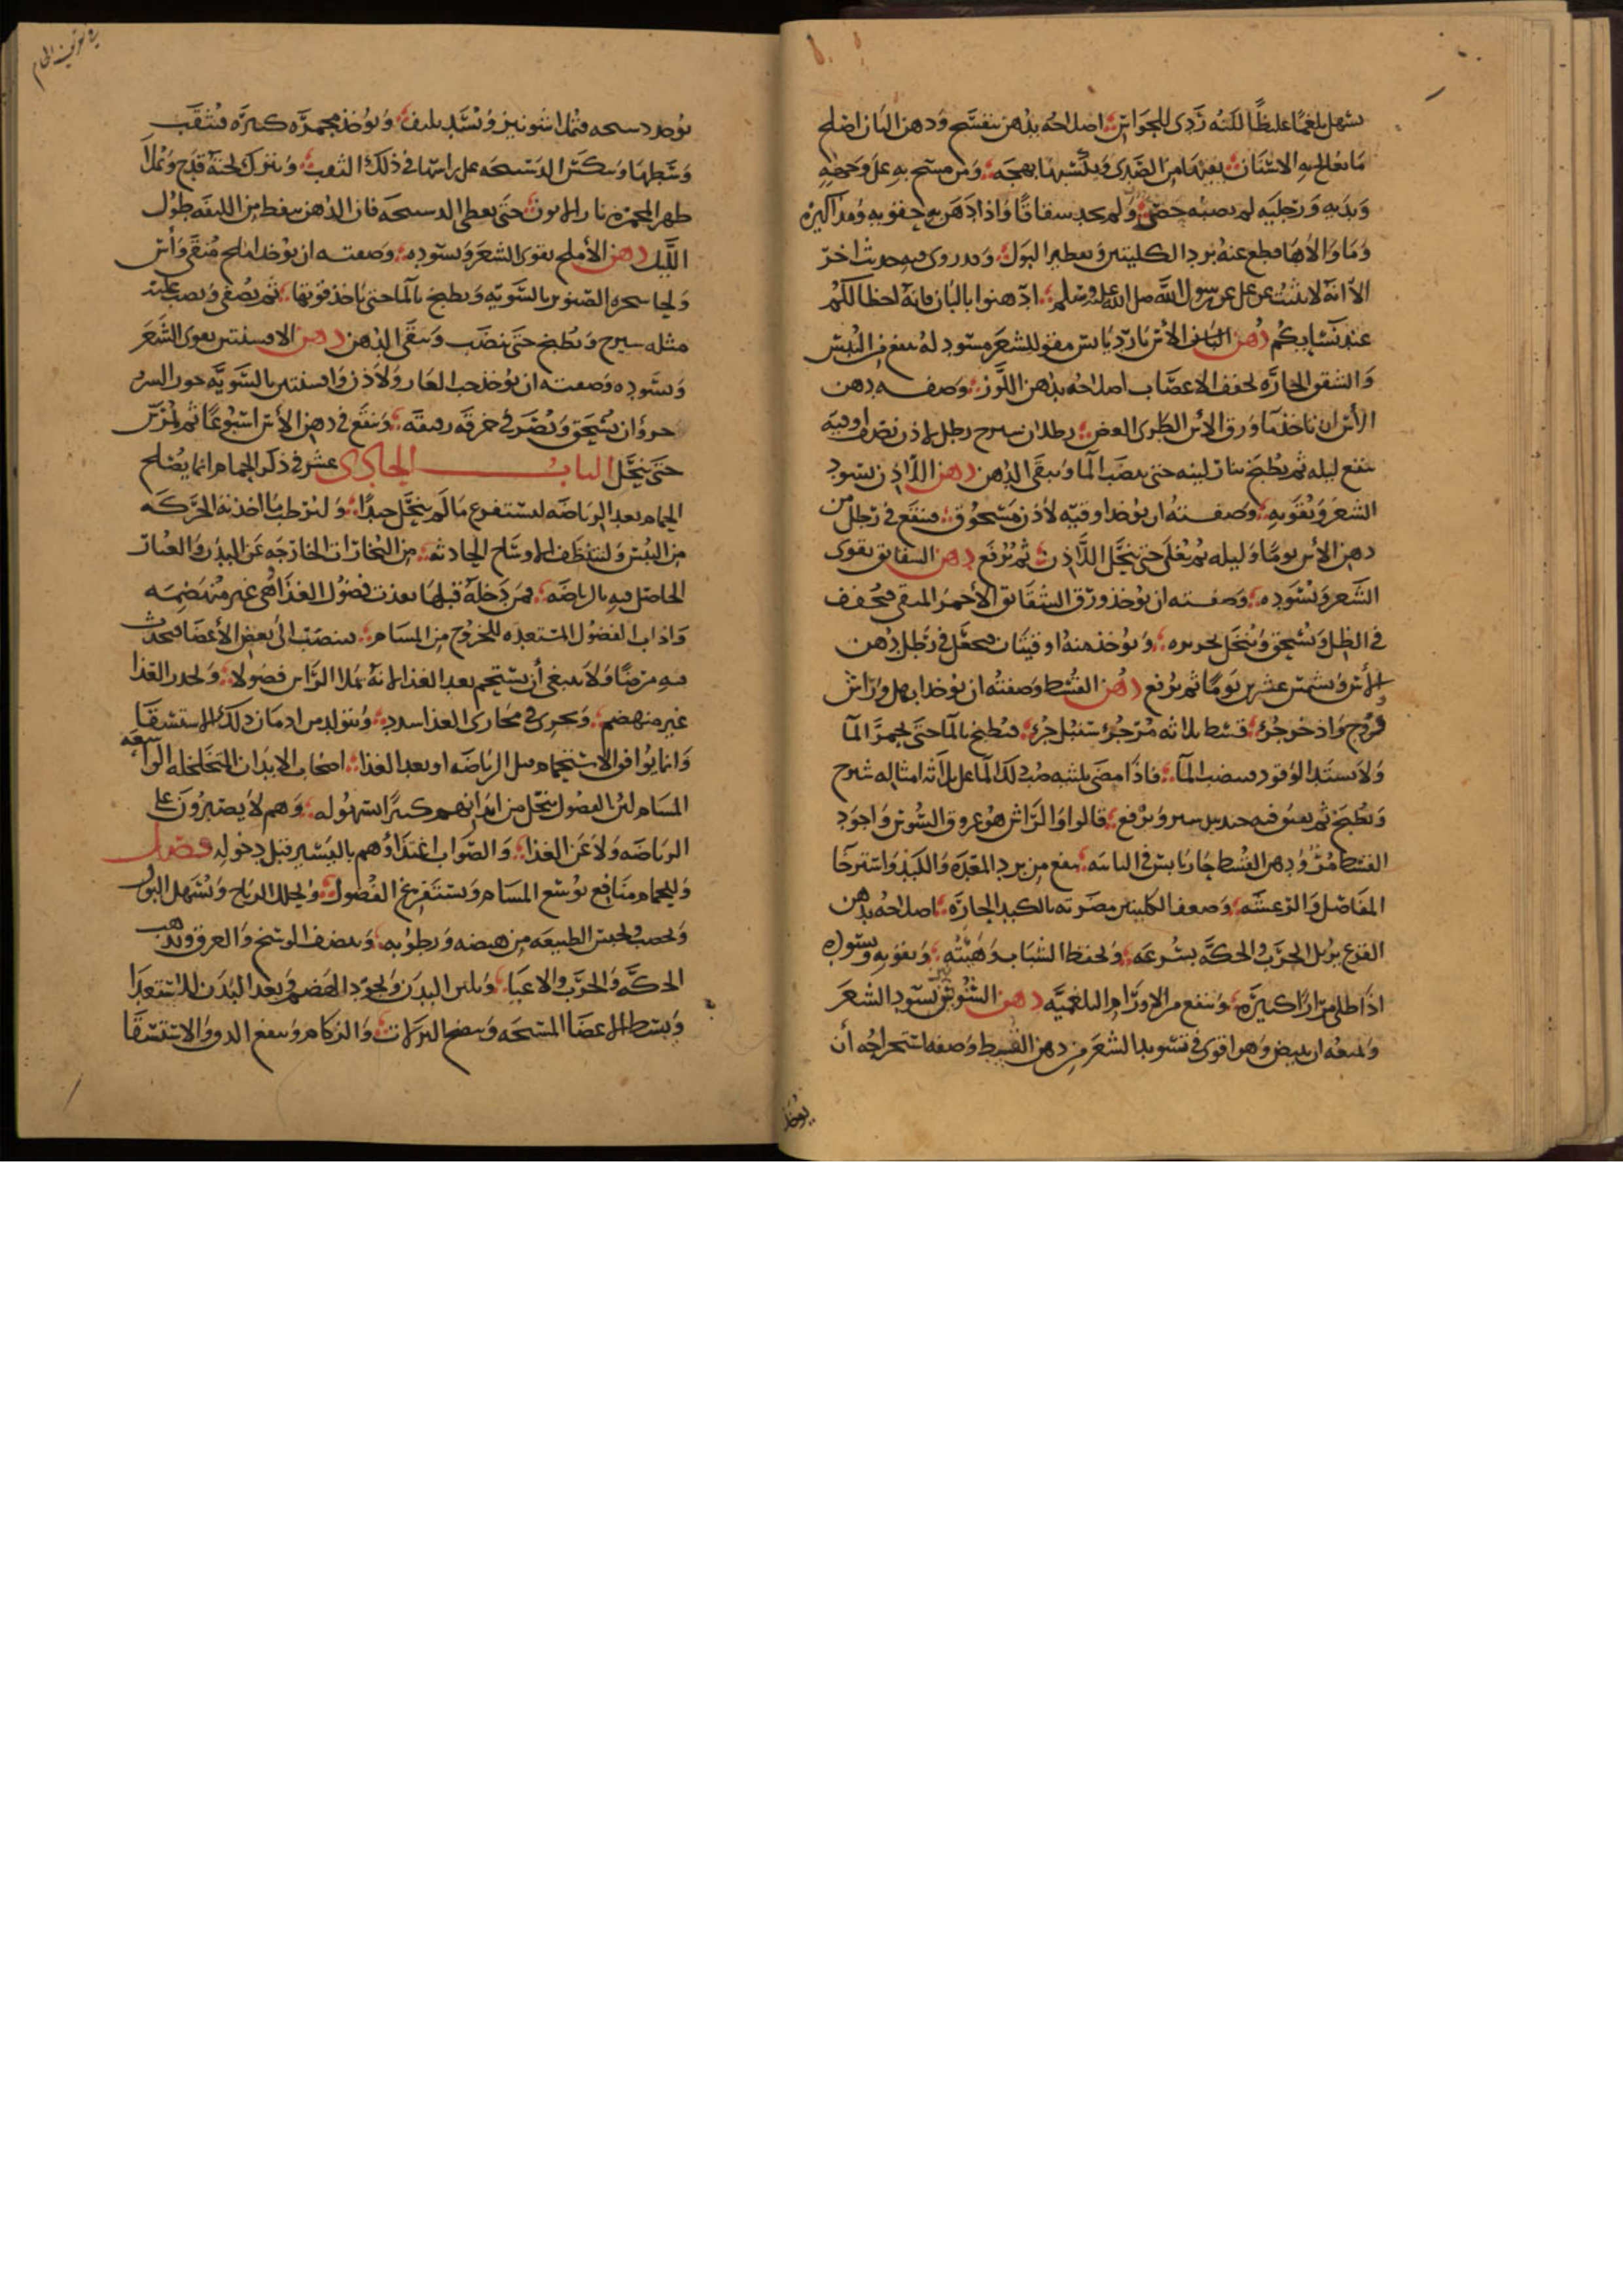 يسهل بلغما غليظا لكنه ردى للحواس اصلاحه بدهن بنفسج ودهن البان اصلح
ما تعالج به الاسنان يعيدها من الصدى ويكسبها بهجة ومن مسح به على وجهه
ويديه ورجليه لم يصبه حصى ولم يجد سقاقا واذا ادهن به حقويه ومذاكيره
وما والاها قطع عنه برد الكليتين وتقطير البول وقد روى فيه حديث اخر
الا انه لا يثبت عن على عن رسول الله صلى الله عليه وسلم ادهنوا بالبان فانه احظا لكم
عند نسايكم دهن الاس بارد يابس مقو للشعر مسود له ينفع من اليبس
والشقوق الحاره يجفف الاعصاب اصلاحه بدهن اللوز وصفه دهن
الاس ان تاخذ ما ورق الاس الطرى الغض رطلان سيرج رطل لاذن نصف اوقيه
ينقع ليله ثم يطبخ بنار لينه حتى ينضب الما ويبقى الدهن دهن اللاذن يسود
الشعر ويقويه وصفته ان يوخذ اوقيه لاذن مسحوق فينقع فى رطل من
دهن الاس يوما وليله ثم يغلى حتى ينحل اللاذن ثم يرفع دهن الشقايق يقوى
الشعر ويسوده وصفته ان يوخذ ورق الشقايق الاحمر المنقى فيجفف
فى الظل ويسحق وينخل بحريره ويوخذ منه اوقيتان فيجعل فى رطل دهن
الاس ويشمس عشرين يوما ثم يرفع دهن القسط وصفته ان يوخذ ابهل وراش
واذخر جزء قسط ثلاثه مر جزء سنبل جزء فيطبخ بالما حتى يحمر الما
ولا يستد الوقود فينضب الما فاذا مضى ثلثيه صب لذلك الما على ثلاثه امثاله شيرج
ويطبخ ثم يعتق فيه جندبيدستر ويرفع قالوا والراش هو عروق السوس واجود
القسط مر ودهن القسط حار يابس فى الثانيه ينفع من برد المعده والكبد واسترخا
المفاصل والرعشه وضعف الكليتين مضرته بالكبد الحاره اصلاحه بدهن
القرع يزيل الجرب والحكه بسرعه ويحفظ الشباب وهيئته ويقويه ويسوده
اذا طلى مرارا كثيره وينفع من الاورام البلغميه دهن الشونيز يسود الشعر
ويمنعه ان يبيض وهو اقوى فى تسويد الشعر من دهن القسط وصفه استخراجه أن
يوخذ
يوخذ دستيجه فتملا شونيز وتسد بليف ويوخذ مجمره كبيره فتثقب
وسطها وتنكس الدستيجه على راسها فى ذلك الثقب ويترك تحته قدح وتملا
ظهر المجمره نار حتى يغطى الدستيجه فان الدهن يسقط من الليفه طول
الليل دهن الأملج يقوى الشعر ويسوده وصفته ان يوخذ املج منقى وأس
ولحا شجره الصنوبر بالسويه ويطبخ بالما حتى ياخذ قوتها ثم يصفى ويصب عليه
مثله سيرج ويطبخ حتى ينضب ويبقى الدهن دهن الافسنتين يقوى الشعر
ويسوده وصفته ان يوخذ حب الغار ولاذن وافسنتين بالسويه
جزؤان يسحق ويصر فى خرقه رقيقه وينقع فى دهن الأس اسبوعا ثم يمرس
حتى ينحل الباب الحادى عشر فى ذكر الحمام انما يصلح
الحمام بعد الرياضه ليستفرغ ما لم يتحلل جيدا وليرطب ما اخذته الحركه
من اليبس ولتنظف الاوساخ الحادثه من البخارات الخارجه عن البدن والغبار
الحاصل فيه بالرياضه فمن دخله قبلها بعدت فضول الغذا وهى غير منهضمه
واذاب الفضول المستعده للخروج من المسام فينصب الى بعض الأعضا فيحدث
فيه مرضا ولا ينبغى أن يستحم بعد الغذا لانه يملا الراس فضولا ويحدر الغذا
غير منهضم ويجرى فى مجارى الغذا سدد ويتولد من ادمان ذلك الاستسقا
وانما يوافق الاستحمام قبل الرياضه او بعد الغذا اصحاب الابدان المتخلخله الواسعه
المسام لئن الفضول يتحلل من ابدانهم كثيرا بسهوله وهم لا يصبرون على
الرياضه ولا عن الغذا والصواب اغتذاؤهم باليسير قبل دخوله فصل
وللحمام منافع توسع المسام ويستفرغ الفضول ويحلل الرياح ويسهل البول
ويخصب ويحبس الطبيعه من هيضه ورطوبه وينضف الوسخ والعرق ويذهب
الحكه والجرب والاعيا ويلين البدن ويجود الهضم ويعد البدن للاستعدا
ويبسط الاعضا المتشنجه وينضج النزلات والزكام وينفع الدق والاستسقا